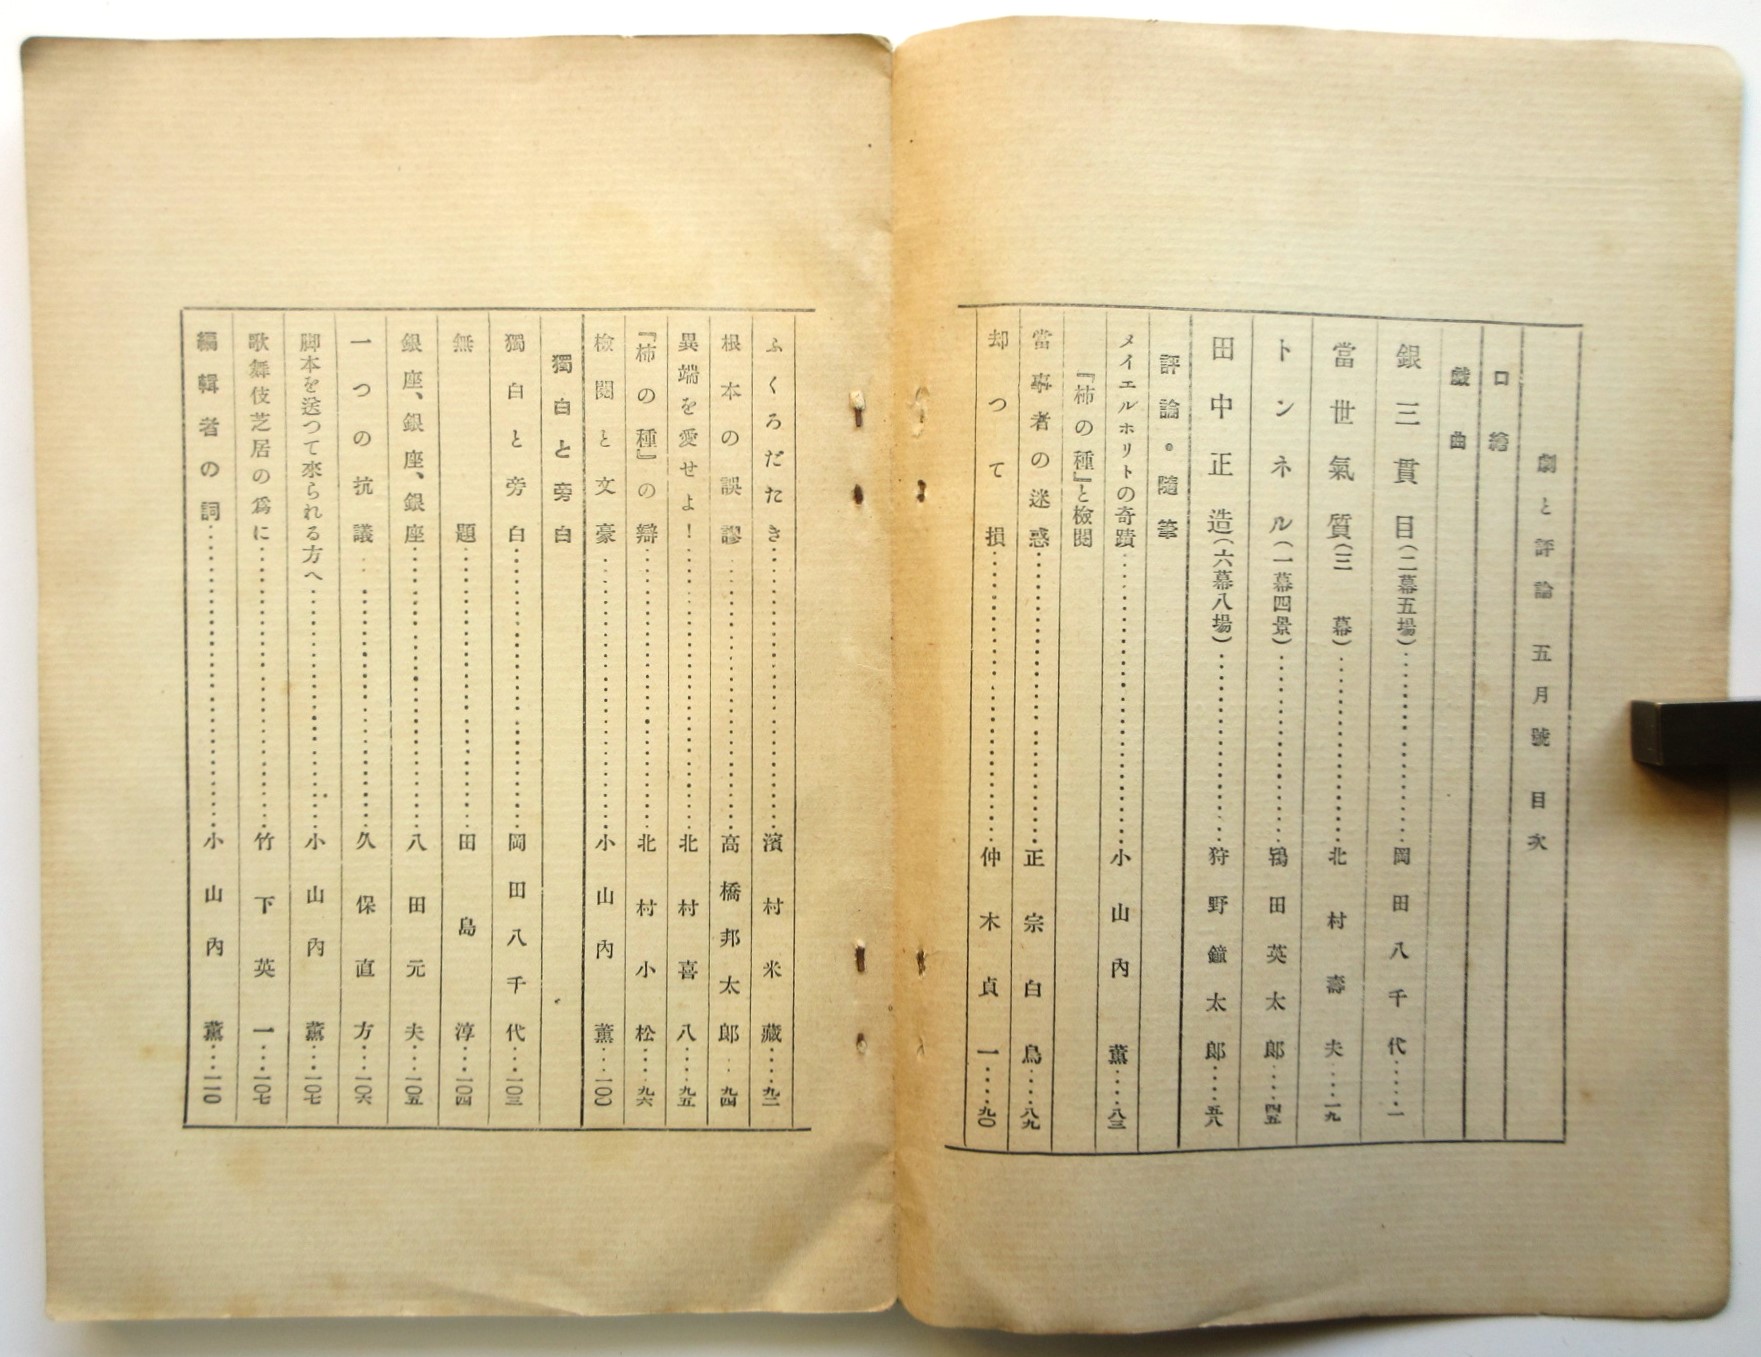 劇と評論 五月號 目次
口繪
戯曲
銀三貫目(二幕五場)……岡田八千代……一
當世氣質(三幕)……北村壽夫……一九
トンネル(一幕四景)……鴇田英太郎……四五
田中正造(六幕八場)……狩野鐘太郎……五八
評論。隨筆
メイエルホリトの奇蹟……小山內薰……八三
『柿の種』と檢閱
當事者の迷惑……正宗白鳥……八九
却つて損……仲木貞一……九〇
ふくろだたき……濱村米藏……九二
根本の誤謬……高橋邦太郎……九四
異端を愛せよ!……北村喜八……九五
『柿の種』の辯……北村小松……九六
檢閱と文豪……小山內薰……一〇〇
獨白と旁白
獨白と旁白……岡田八千代……一〇三
無題……田島淳……一〇四
銀座、銀座、銀座……八田元夫……一〇五
一つの抗議……久保直方……一〇六
脚本を送つて來られる方へ……小山內薰……一〇七
歌舞伎芝居の爲に……竹下英一……一〇七
編輯者の詞……小山內薰……一一〇